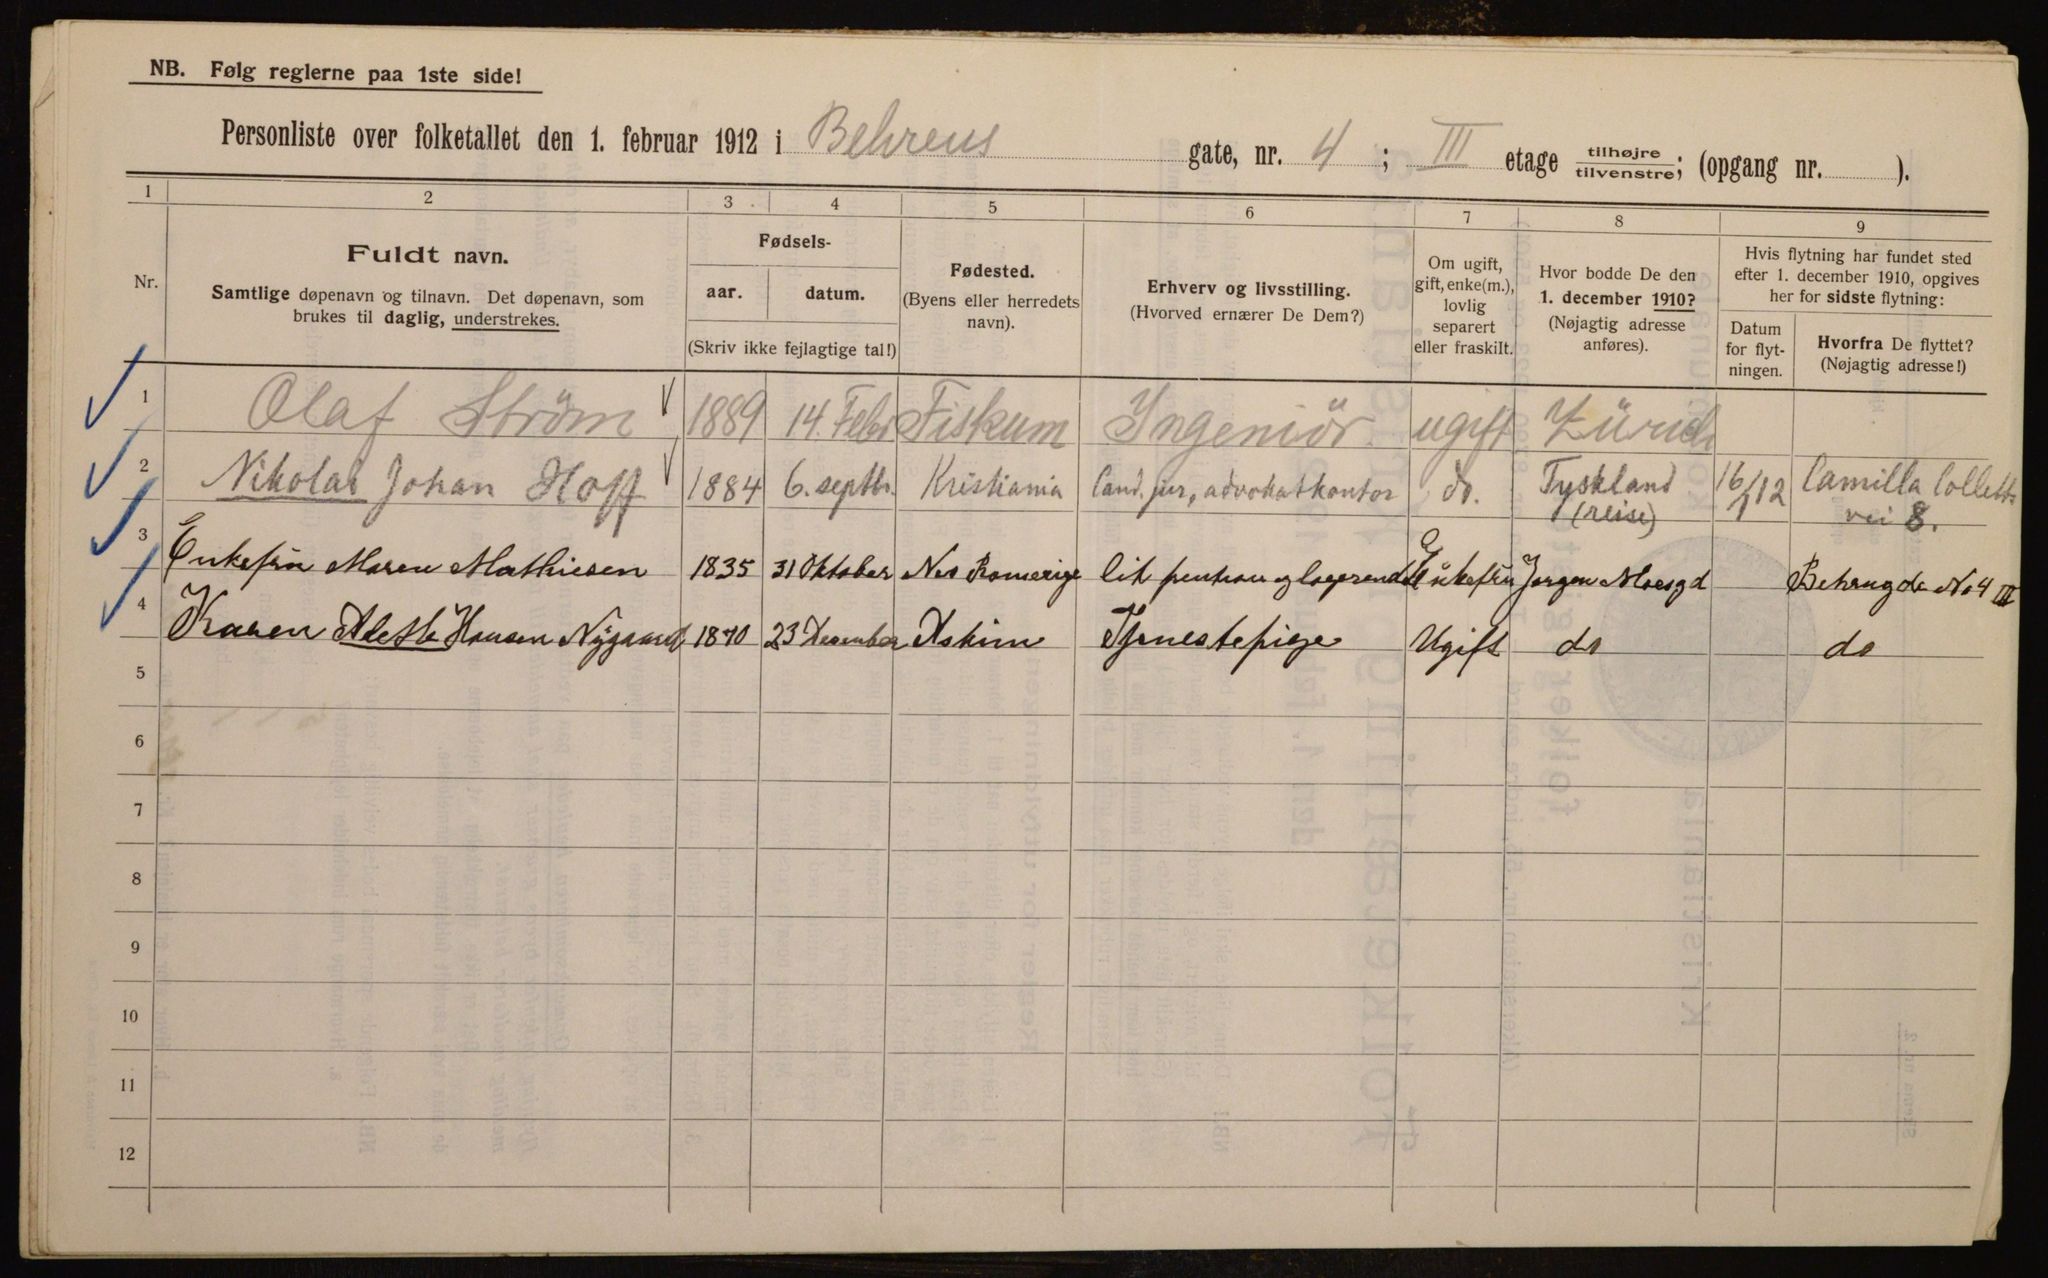 NB. Følg reglerne paa 1ste side!
Personliste over folketallet den 1. februar 1912 i Behrens gate, nr. 4 ; III etage tilhøjre tilvenstre; (opgang nr. ).
1 2 3 4 5 6 7 8 9
Nr.
Fuldt navn.
Samtlige døpenavn og tilnavn. Det døpenavn, som
brukes til daglig, understrekes.
Fødsels-
aar. datum.
(Skriv ikke fejlagtige tal!)
Fødested.
(Byens eller herredets
navn).
Erhverv og livsstilling.
(Hvorved ernærer De Dem?)
Om ugift,
gift, enke(m.),
lovlig
separert
eller fraskilt.
Hvor bodde De den
1. december 1910?
(Nøjagtig adresse
anføres).
Hvis flytning har fundet sted
efter 1. december 1910, opgives
her for sidste flytning:
Datum
for flyt-
ningen.
Hvorfra De flyttet?
(Nøjagtig adresse!)
1 Olaf Ström 1889 14. Febr Fiskum Ingeniör ugift Zürich
2 Nikolai Johan Hoff 1884 6. septbr. Kristiania Cand. jur, advokatkontor do. Tyskland (reise) 16/1 12 Camilla Colletts vei 8.
3 Enkefru Maren Mathiesen 1835 31 Oktober Nes Romerige lit pention og logerende Enkefru Jørgen Moesgd Behrngde No 4 III
4 Karen Hansen Nygaard 1870 23 Desember Askim Tjenestepige Ugift do do
5
6
7
8
9
10
11
12